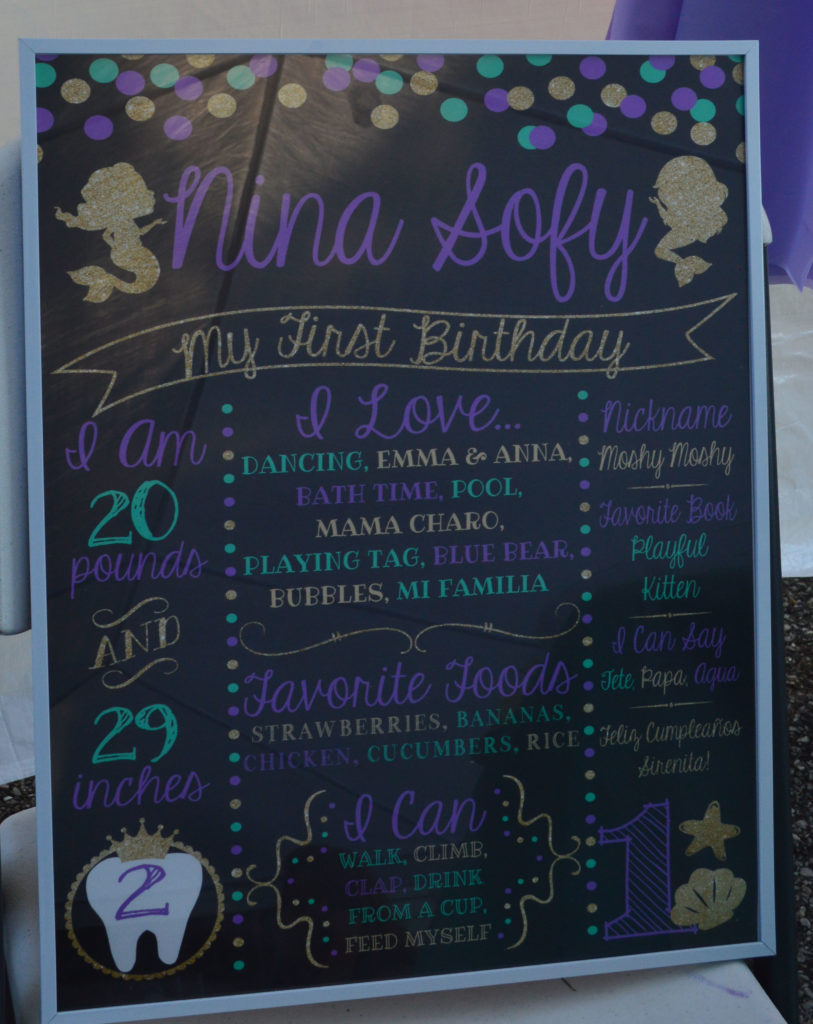 Nina Sofy
My First Birthday
I Am
20
pounds
AND
29
inches
2
I Love...
DANCING, EMMA & ANNA,
BATH TIME, POOL,
MAMA CHARO,
PLAYING TAG, BLUE BEAR,
BUBBLES, MI FAMILIA
Favorite Foods
STRAWBERRIES, BANANAS,
CHICKEN, CUCUMBERS, RICE
I Can
WALK, CLIMB,
CLAP, DRINK
FROM A CUP,
FEED MYSELF
Nickname
Moshy Moshy
Favorite Book
Playful
Kitten
I Can Say
Tete, Papa, Aqua
Feliz Cumpleaños
Sirenita!
1